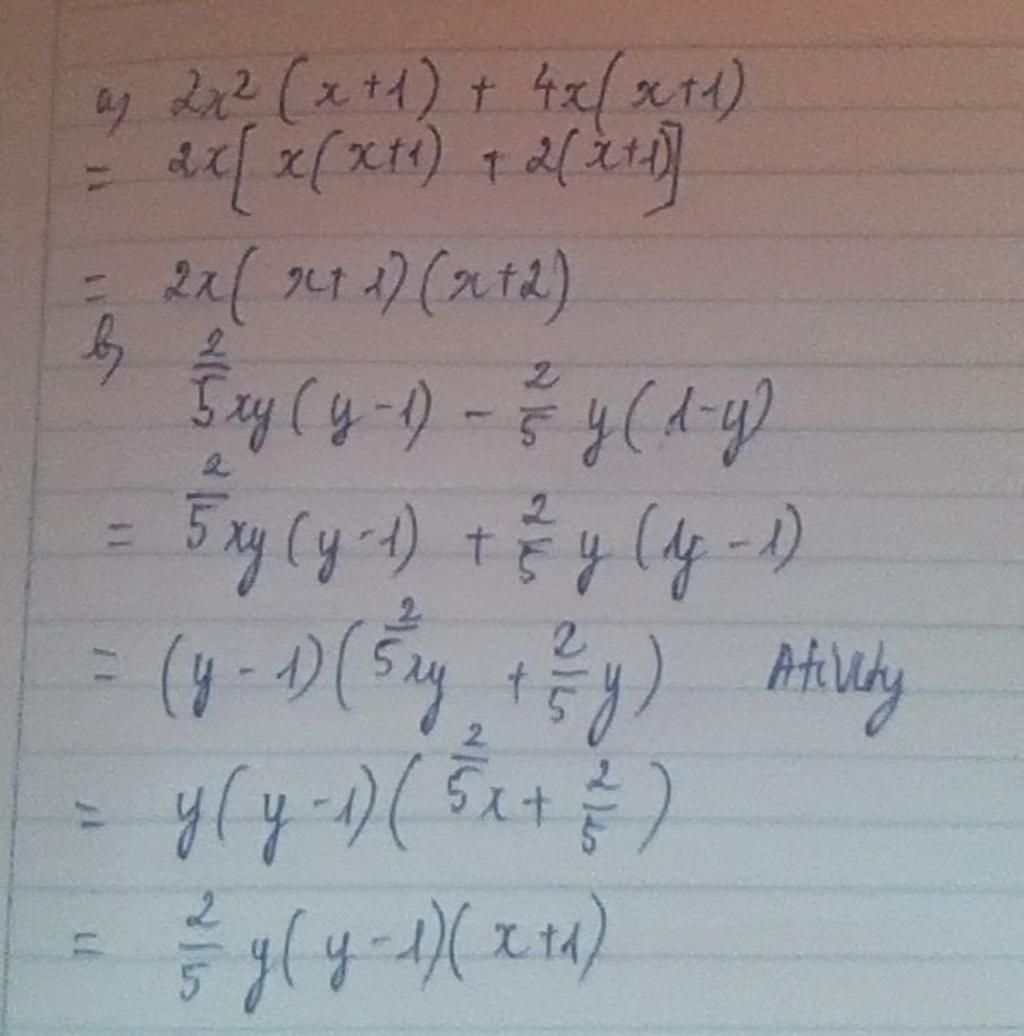 a) 2x² (x+1) + 4x(x+1)
= 2x[ x(x+1) + 2(x+1)]
= 2x( x+1)(x+2)
b) 2/5 xy(y-1) - 2/5 y(1-y)
= 2/5 xy(y-1) + 2/5 y (y-1)
= (y-1)(2/5 xy + 2/5 y)
= y(y-1)(2/5 x + 2/5)
= 2/5 y(y-1)(x+1)